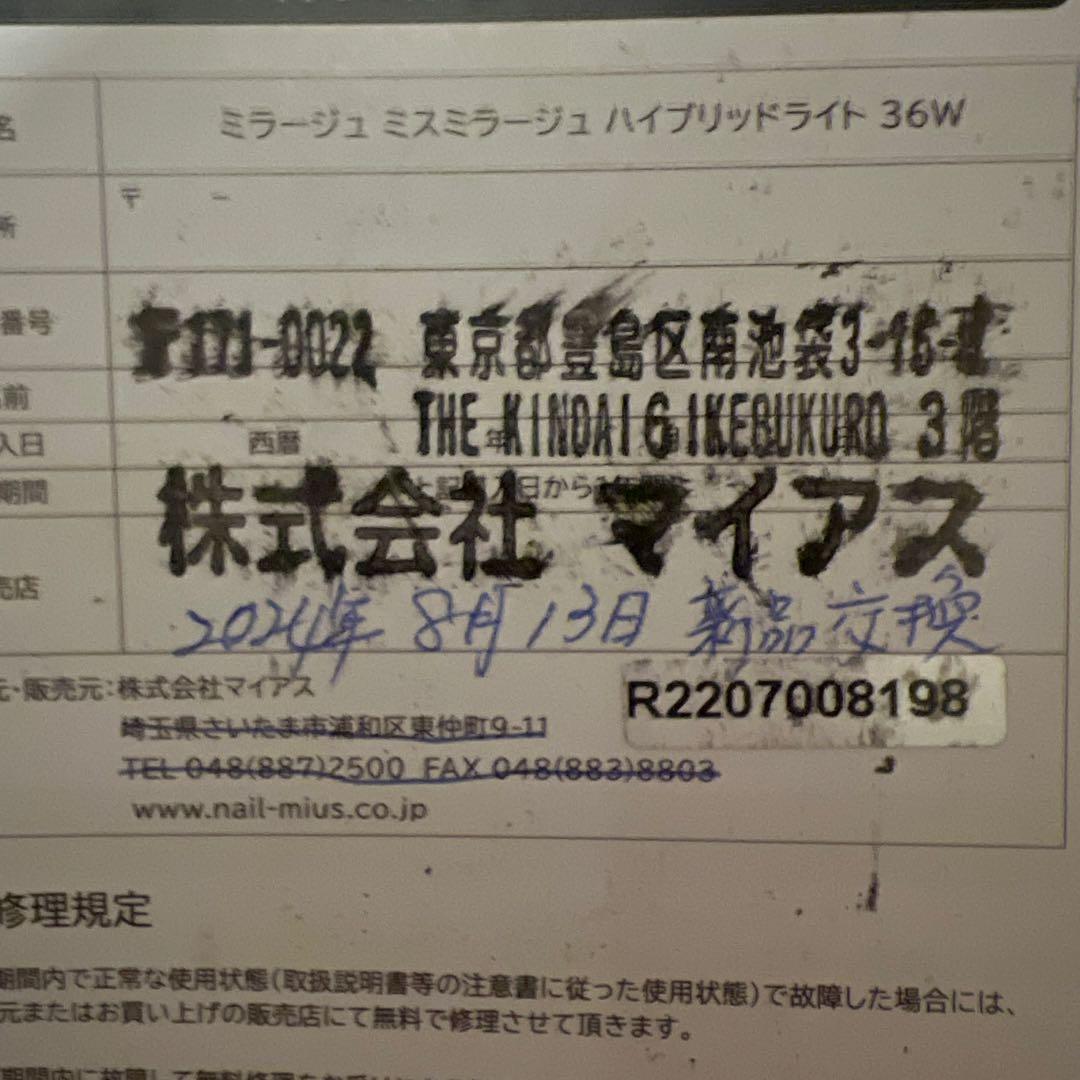 名 ミラージュ ミスミラージュ ハイブリッドライト 36W
所 〒 -
番号
〒171-0022 東京都豊島区南池袋3-16-
前
THE KINDAI 6 IKEBUKURO 3階
入日 西暦 年
期間 日から
株式会社 マイアス
売店
2024年 8月 13日 新品交換
元・販売元:株式会社マイアス
R2207008198
埼玉県さいたま市浦和区東仲町9-11
TEL 048(887)2500 FAX 048(883)8803
www.nail-mius.co.jp
修理規定
期間内で正常な使用状態(取扱説明書等の注意書に従った使用状態)で故障した場合には、
元またはお買い上げの販売店にて無料で修理させて頂きます。
期間内に故障して無料修理を